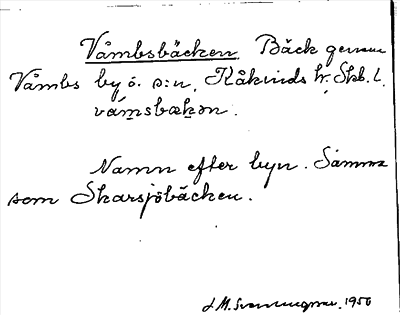 Våmbsbäcken. Bäck genom
Våmbs by ö. s:n, Kåkinds hr. Skb. l.
vámsbækən.
Namn efter byn. Samma
som Skarsjöbäcken.
1950